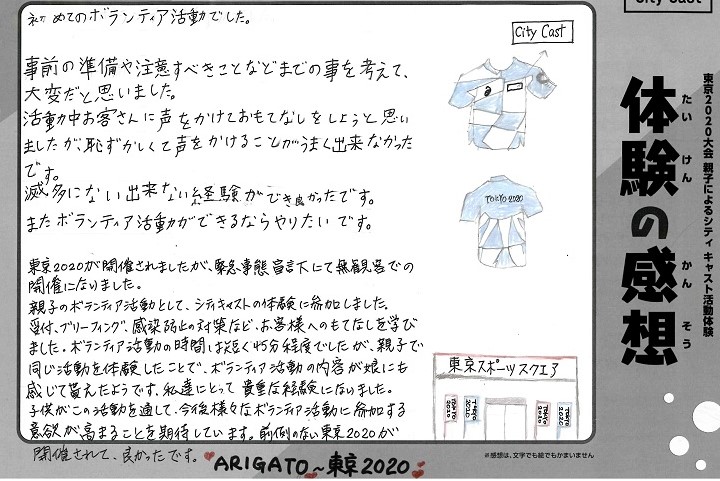 初めてのボランティア活動でした。
事前の準備や注意すべきことなどまでの事を考えて、
大変だと思いました。
活動中お客さんに声をかけておもてなしをしようと思い
ましたが、恥ずかしくて声をかけることがうまく出来なかった
です。
滅多にない出来ない経験ができ良かったです。
またボランティア活動ができるならやりたいです。
東京2020が開催されましたが、緊急事態宣言下にて無観客での
開催になりました。
親子のボランティア活動として、シティキャストの体験に参加しました。
受付、ブリーフィング、感染防止の対策など、お客様へのもてなしを学び
ました。ボランティア活動の時間は短く45分程度でしたが、親子で
同じ活動を体験したことで、ボランティア活動の内容が娘にも
感じて貰えたようです。私達にとって貴重な経験になりました。
子供がこの活動を通して、今後様々なボランティア活動に参加する
意欲が高まることを期待しています。前例のない東京2020が
開催されて、良かったです。
ARIGATO~東京2020
City Cast
TOKYO 2020
東京スポーツスクエア
TOKYO 2020
TOKYO 2020
TOKYO 2020
TOKYO 2020
※感想は、文字でも絵でもかまいません
City Cast
東京2020大会 親子によるシティキャスト活動体験
体験の感想
たいけん かんそう